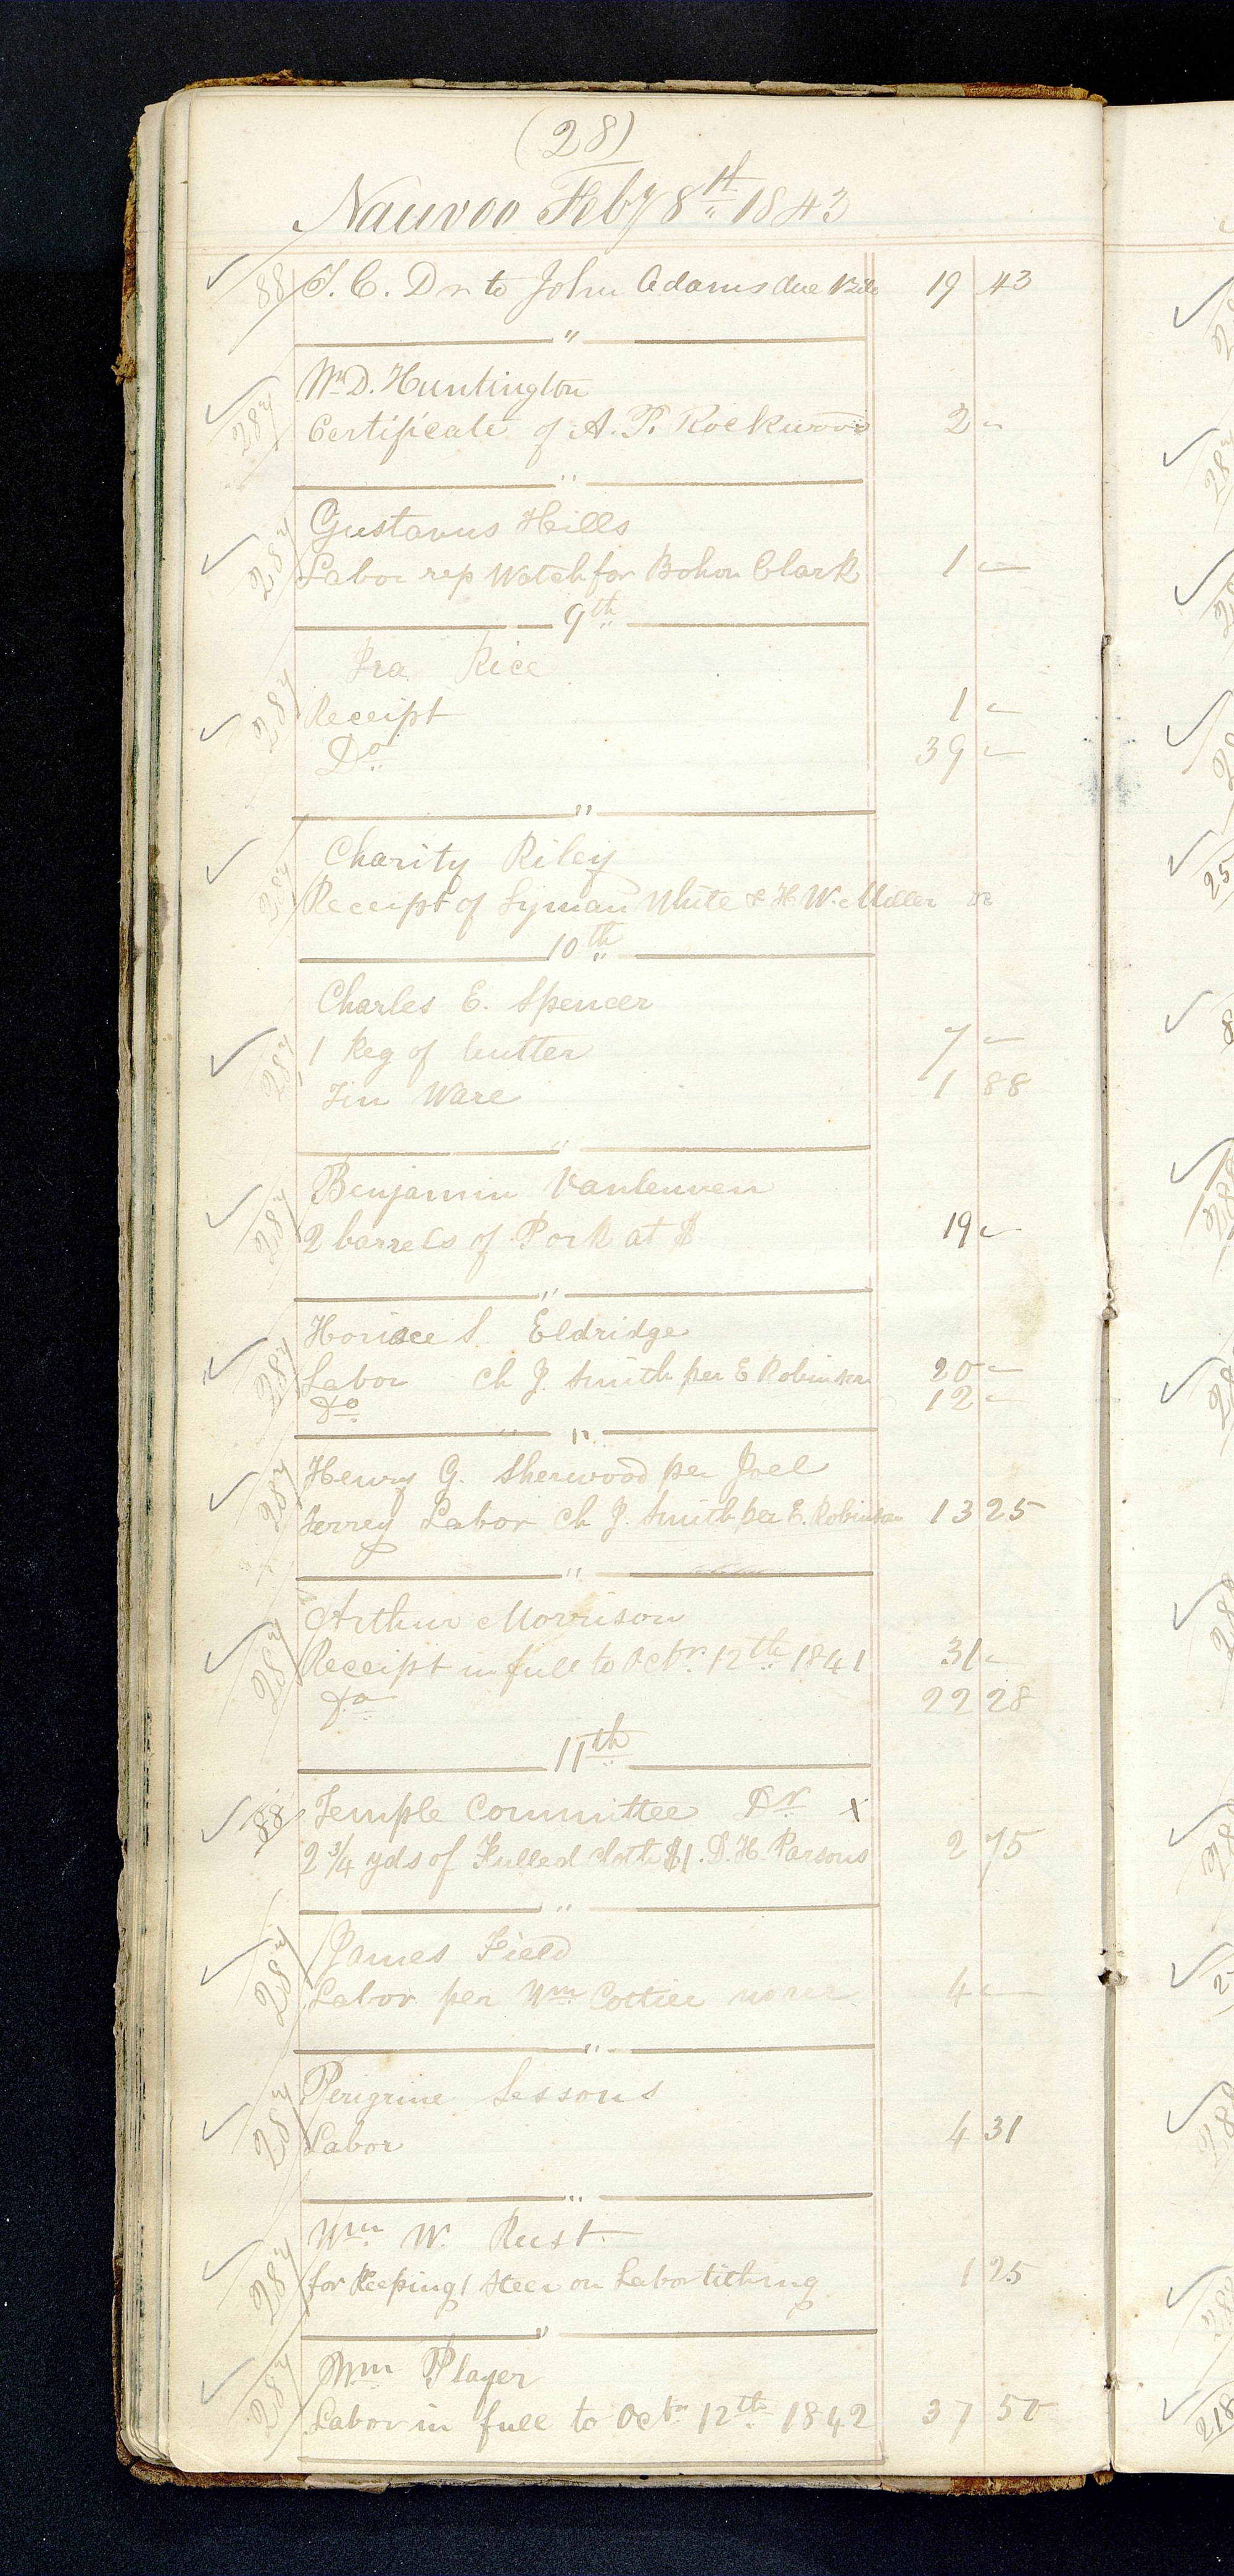 (28)
Nauvoo Feby 8th 1843
✓ 88 T. C. Dr to John Adams due Bill 19 43
"
Wm D. Huntington
✓ 287 Certificate of A. P. Rockwood 2 "
"
Gustavus Hills
✓ 287 Labor rep Watch for Bohon Clark 1 —
9th
Ira Rice
✓ 287 Receipt 1 —
Do 39 —
"
Charity Riley
✓ 287 Receipt of Lyman White & H W. Miller
10th
Charles E. Spencer
✓ 287 1 Keg of butter 7 —
Tin Ware 1 88
"
Benjamin Vanleuven
✓ 287 2 barrels of Pork at $ 19 —
"
Horiace S. Eldridge
✓ 287 Labor Ch J. Smith per E Robinson 20 —
Do 12 —
" "
Henry G. Sherwood per Joel
✓ 287 Terrey Labor Ch J. Smith per E. Robinson 13 25
"
Arthur Morrison
✓ 287 Receipt in full to Octr. 12th 1841 31 —
Do 22 28
11th
✓ 88 Temple Committee Dr x
2 3/4 yds of Fulled cloth $1. D. H. Parsons 2 75
"
James Field
✓ 287 Labor per Wm Cottier 4 —
"
Perigrine Sessons
✓ 287 Labor 4 31
"
Wm W. Rust
✓ 287 for Keeping 1 Steer on Labor tithing 1 25
"
Wm Player
✓ 287 Labor in full to Octr 12th 1842 37 50